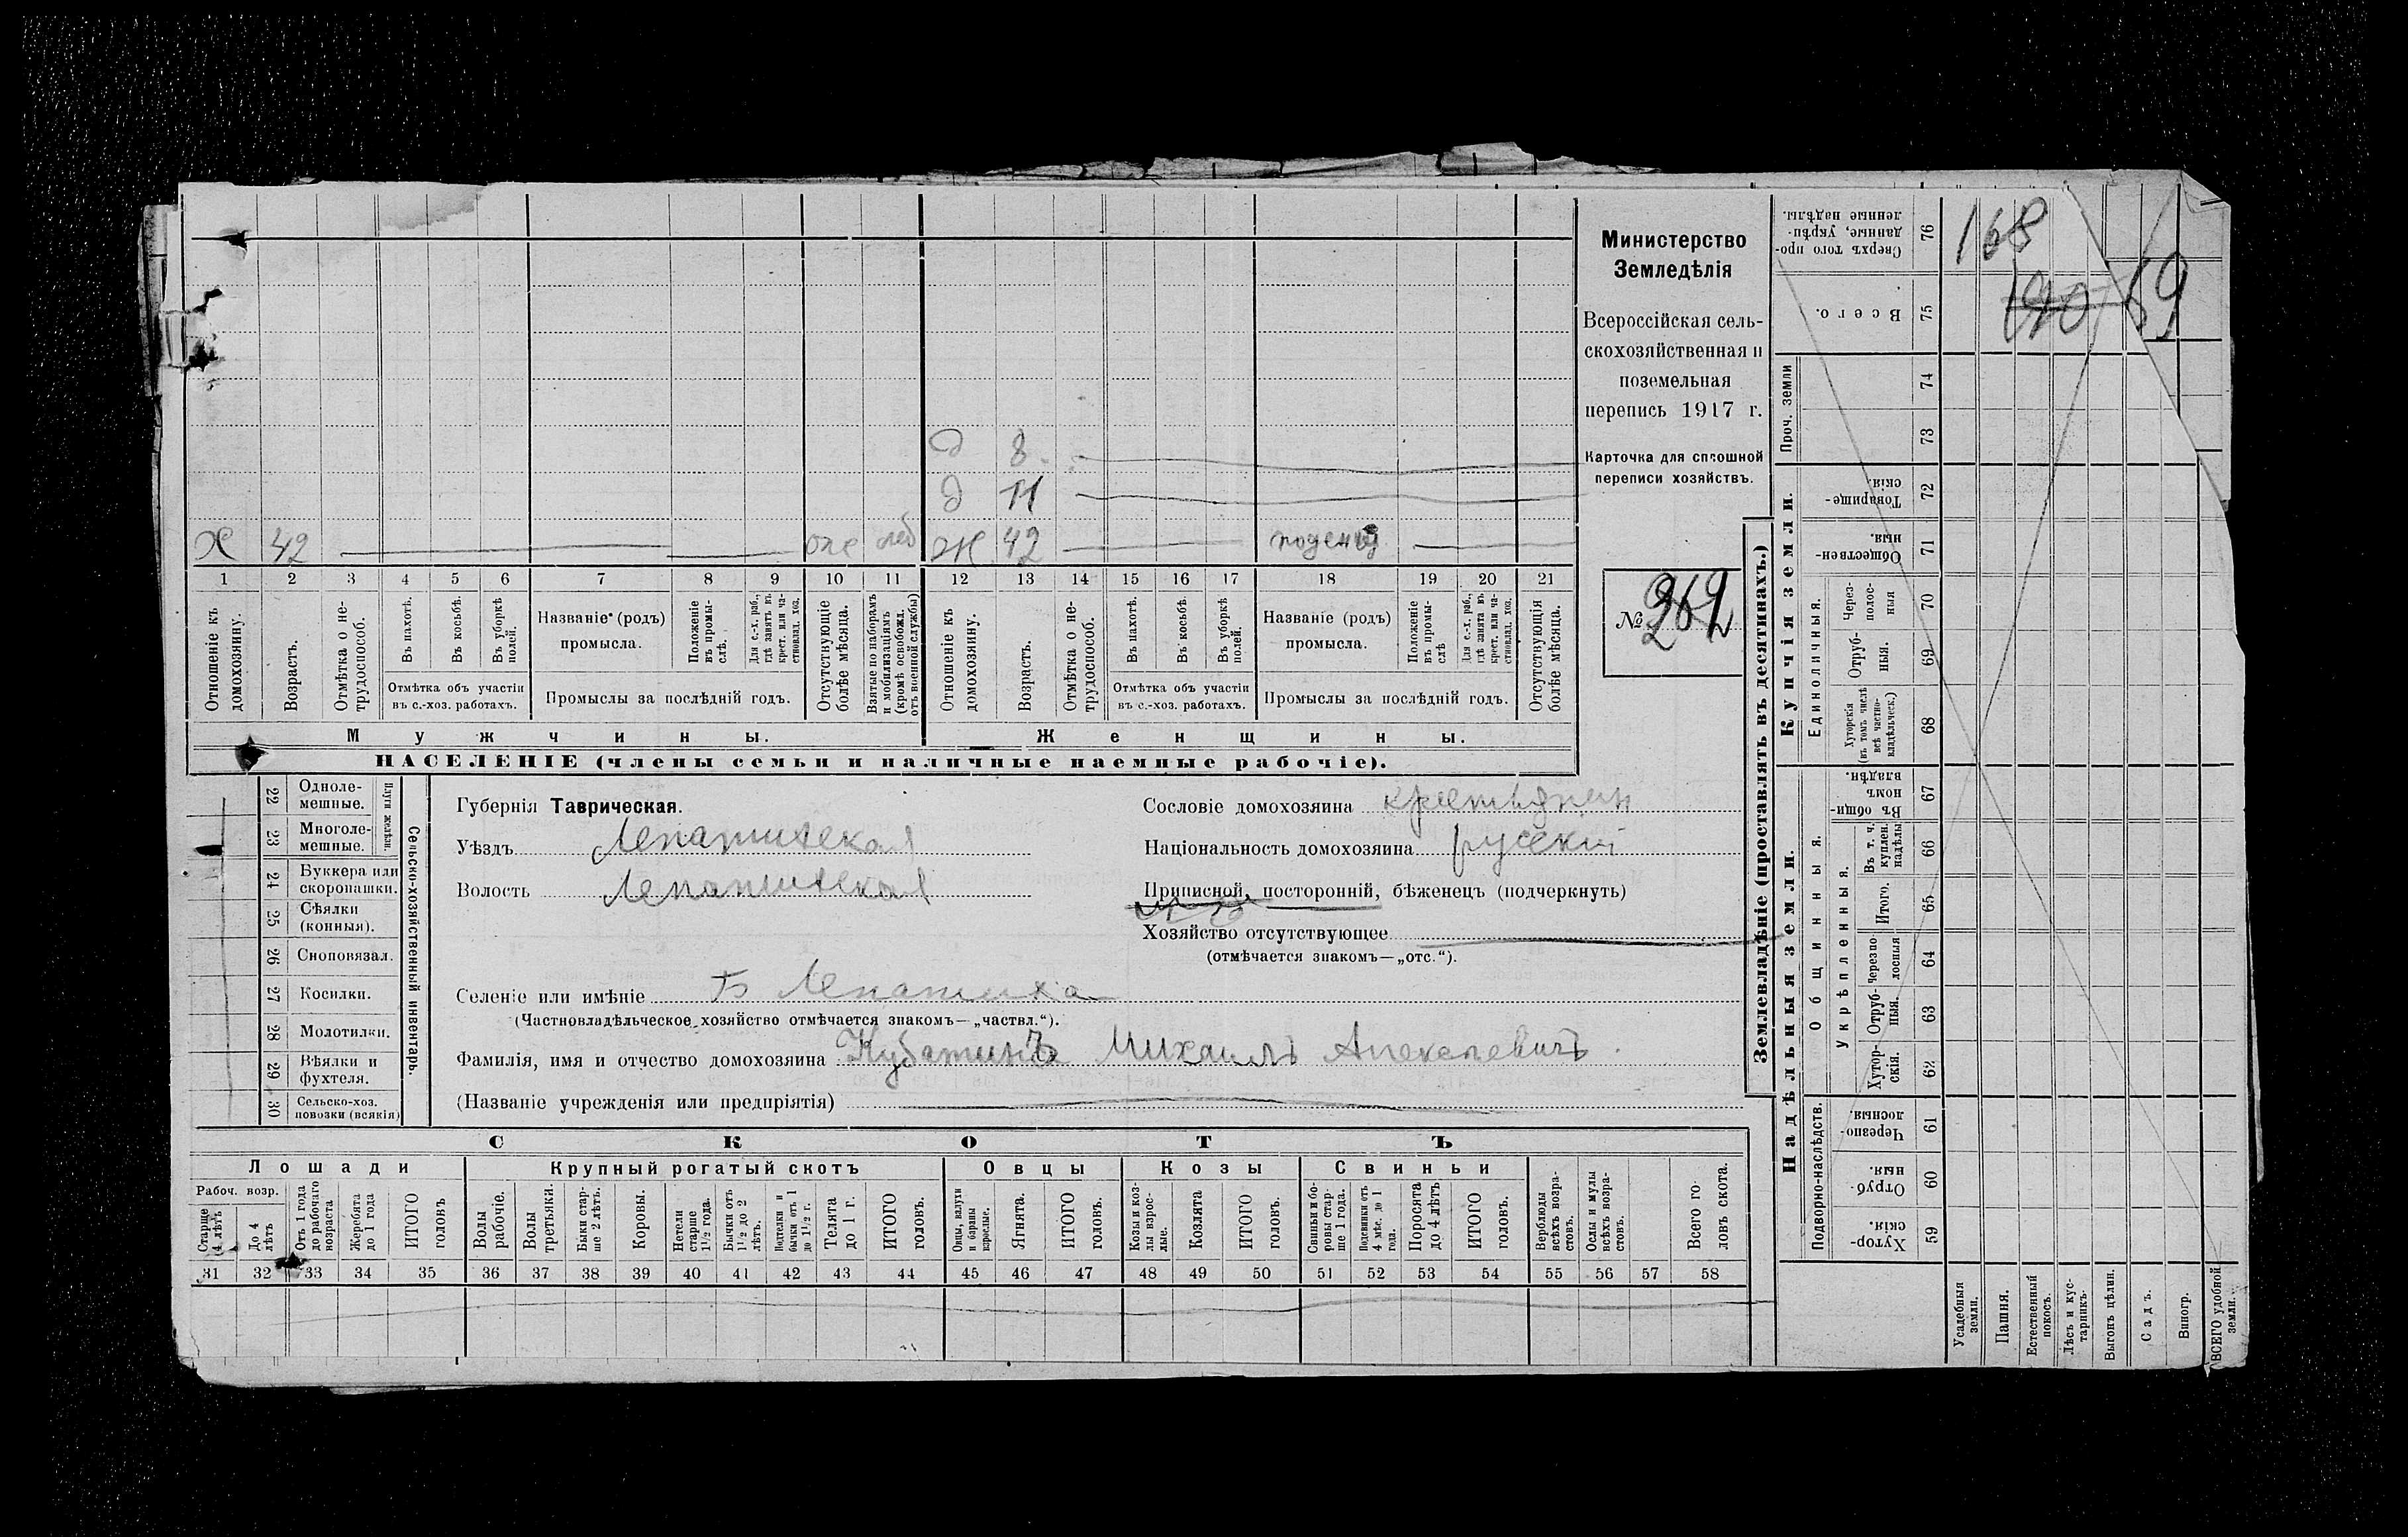 Министерство
Земледѣлія
Всероссійская сель-
скохозяйственная и
поземельная
перепись 1917 г.
Карточка для сплошной
переписи хозяйствъ.
№
д 8
д 11
х 42
ж 42
1 2 3 4 5 6 7 8 9 10 11 12 13 14 15 16 17 18 19 20 21
Отношеніе къ домохозяину.
Возрастъ.
Отмѣтка о не-трудоспособ.
Въ пахотѣ.
Въ косьбѣ.
Въ уборкѣ полей.
Отмѣтка объ участіи
въ с.-хоз. работахъ.
Названіе (родъ)
промысла.
Положеніе въ промы-слѣ.
Для с.-х. раб., гдѣ занятъ въ крест. или ча-стновлад. хоз.
Промыслы за послѣдній годъ.
Отсутствующіе болѣе мѣсяца.
Взятые по наборамъ и мобилизаціямъ (кромѣ освобожд. отъ военной службы)
Отношеніе къ домохозяину.
Возрастъ.
Отмѣтка о не-трудоспособ.
Въ пахотѣ.
Въ косьбѣ.
Въ уборкѣ полей.
Отмѣтка объ участіи
въ с.-хоз. работахъ.
Названіе (родъ)
промысла.
Положеніе въ промы-слѣ
Для с.-х. раб., гдѣ занята въ крест. или ча-стновлад. хоз.
Промыслы за послѣдній годъ.
Отсутствующія болѣе мѣсяца.
Мужчины.
Женщины.
НАСЕЛЕНІЕ (члены семьи и наличные наемные рабочіе).
22 Одноле-мешные.
23 Многоле-мешные.
Плуги желѣзн.
24 Буккера или скоропашки.
25 Сѣялки (конныя).
26 Сноповязал.
27 Косилки.
28 Молотилки.
29 Вѣялки и фухтеля.
30 Сельско-хоз. повозки (всякія)
Сельско-хозяйственный инвентарь.
Губернія Таврическая.
Уѣздъ
Волость
Селеніе или имѣніе Б Лепатиха
(Частновладѣльческое хозяйство отмѣчается знакомъ—„частвл.“).
Фамилія, имя и отчество домохозяина Михаилъ Алексѣевичъ
(Названіе учрежденія или предпріятія)
Сословіе домохозяина крестьянин
Національность домохозяина русскій
Приписной, посторонній, бѣженецъ (подчеркнуть)
Хозяйство отсутствующее
(отмѣчается знакомъ—„отс.“).
СКОТЪ
Лошади
Крупный рогатый скотъ
Овцы
Козы
Свиньи
Рабоч. возр.
Старше 4 лѣтъ
До 4 лѣтъ
Отъ 1 года до рабочаго возраста
Жеребята до 1 года
ИТОГО головъ
Волы рабочіе.
Волы третьяки.
Быки стар-ше 2 лѣтъ.
Коровы.
Нетели старше 1½ года.
Бычки отъ 1½ до 2 лѣтъ.
Подтелки и бычки отъ 1 до 1½ г.
Телята до 1 г.
ИТОГО головъ.
Овцы, валухи и бараны взрослые.
Ягнята.
ИТОГО головъ.
Козы и коз-лы взрос-лые.
Козлята
ИТОГО головъ.
Свиньи и бо-ровы стар-ше 1 года.
Подсвинки отъ 4 мѣс. до 1 года.
Поросята до 4 лѣтъ
ИТОГО головъ.
Верблюды всѣхъ возра-стовъ.
Ослы и мулы всѣхъ возра-стовъ.
Всего го-ловъ скота.
31 32 33 34 35 36 37 38 39 40 41 42 43 44 45 46 47 48 49 50 51 52 53 54 55 56 57 58
Землевладѣніе (проставлять въ десятинахъ.)
Надѣльныя земли.
Купчія земли.
Проч. земли
Подворно-наслѣдств.
Общинныя.
Укрѣпленныя.
Единоличныя.
76 Сверхъ того про-данные, укрѣп-ленные надѣлы.
168
75 Всего.
69
74
73
72 Товарище-скія.
71 Обществен-ныя.
70 Через-полос-ныя
69 Отруб-ныя.
68 Хуторскія (въ томъ числѣ всѣ частно-владѣльческ.)
67 Въ общи-номъ владѣн.
66 Въ т. ч. куплен. надѣлы
65 Итого.
64 Черезпо-лосныя
63 Отруб-ныя.
62 Хутор-скія.
61 Черезпо-лосныя.
60 Отруб-ныя.
59 Хутор-скія.
Усадебныя земли.
Пашня.
Естественный покосъ.
Лѣсъ и кус-тарникъ.
Выгонъ цѣлин.
Садъ.
Виногр.
ВСЕГО удобной земли.